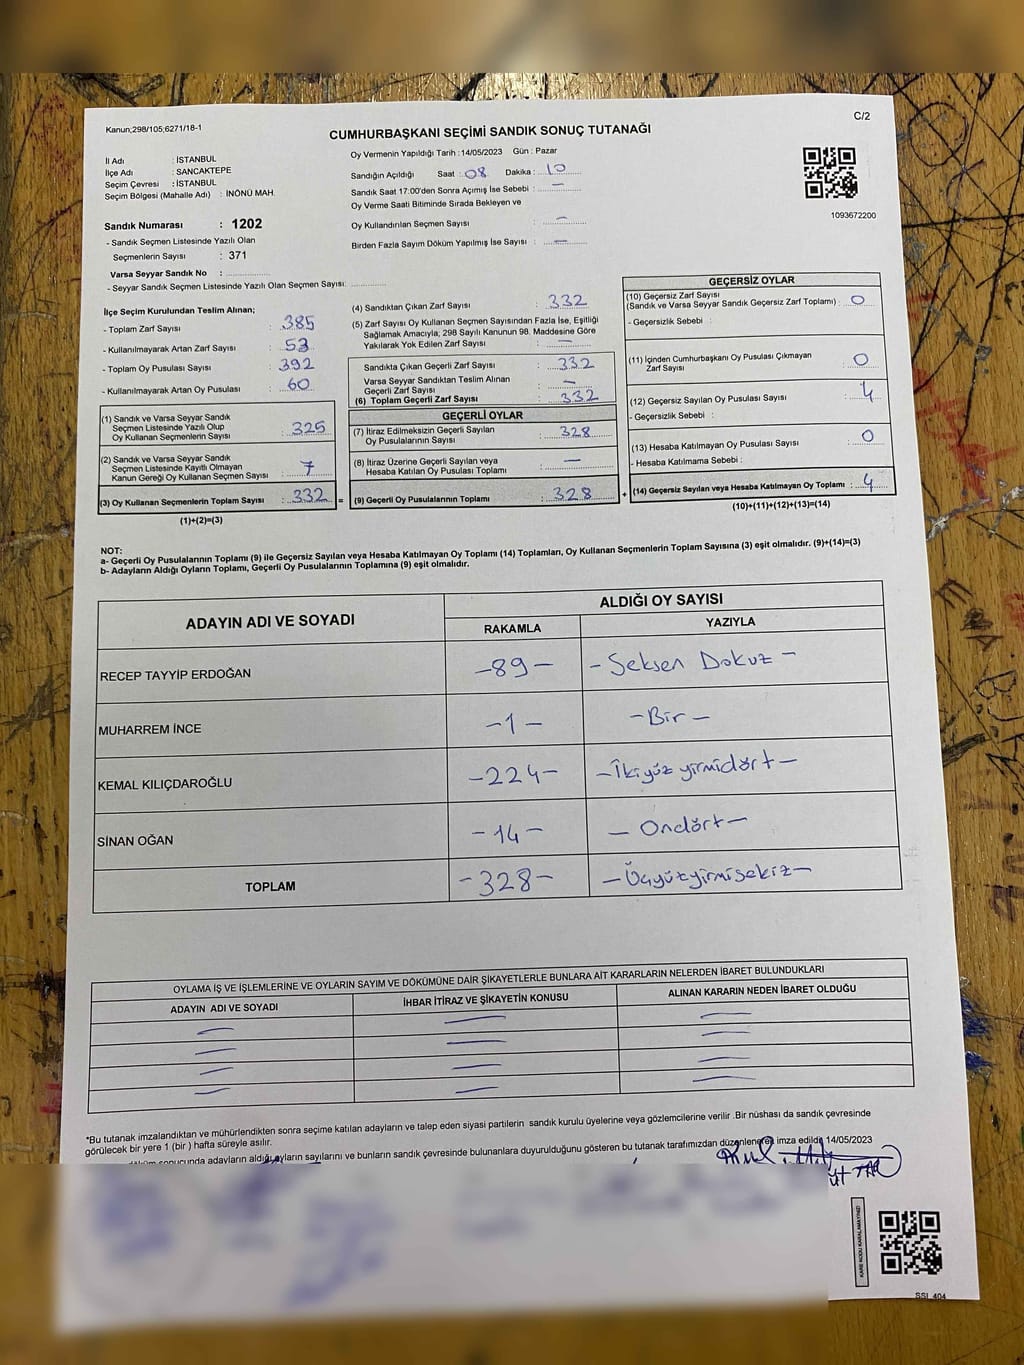 Kanun;298/105;6271/18-1
C/2
CUMHURBAŞKANI SEÇİMİ SANDIK SONUÇ TUTANAĞI
İl Adı : İSTANBUL
İlçe Adı : SANCAKTEPE
Seçim Çevresi : İSTANBUL
Seçim Bölgesi (Mahalle Adı) : İNÖNÜ MAH.
Oy Vermenin Yapıldığı Tarih :14/05/2023 Gün : Pazar
Sandığın Açıldığı Saat : 08 Dakika : 10
Sandık Saat 17:00'den Sonra Açımış İse Sebebi : —
Oy Verme Saati Bitiminde Sırada Bekleyen ve
Oy Kullandırılan Seçmen Sayısı : —
Birden Fazla Sayım Döküm Yapılmış İse Sayısı : —
1093672200
Sandık Numarası : 1202
- Sandık Seçmen Listesinde Yazılı Olan
Seçmenlerin Sayısı : 371
Varsa Seyyar Sandık No :
- Seyyar Sandık Seçmen Listesinde Yazılı Olan Seçmen Sayısı:
İlçe Seçim Kurulundan Teslim Alınan;
- Toplam Zarf Sayısı : 385
- Kullanılmayarak Artan Zarf Sayısı : 53
- Toplam Oy Pusulası Sayısı : 392
- Kullanılmayarak Artan Oy Pusulası : 60
(1) Sandık ve Varsa Seyyar Sandık
Seçmen Listesinde Yazılı Olup
Oy Kullanan Seçmenlerin Sayısı : 325
(2) Sandık ve Varsa Seyyar Sandık
Seçmen Listesinde Kayıtlı Olmayan
Kanun Gereği Oy Kullanan Seçmen Sayısı : 7
(3) Oy Kullanan Seçmenlerin Toplam Sayısı : 332 =
(1)+(2)=(3)
(4) Sandıktan Çıkan Zarf Sayısı : 332
(5) Zarf Sayısı Oy Kullanan Seçmen Sayısından Fazla İse, Eşitliği
Sağlamak Amacıyla, 298 Sayılı Kanunun 98. Maddesine Göre
Yakılarak Yok Edilen Zarf Sayısı : —
Sandıkta Çıkan Geçerli Zarf Sayısı : 332
Varsa Seyyar Sandıktan Teslim Alınan
Geçerli Zarf Sayısı : —
(6) Toplam Geçerli Zarf Sayısı : 332
GEÇERLİ OYLAR
(7) İtiraz Edilmeksizin Geçerli Sayılan
Oy Pusulalarının Sayısı : 328
(8) İtiraz Üzerine Geçerli Sayılan veya
Hesaba Katılan Oy Pusulası Toplamı : —
(9) Geçerli Oy Pusulalarının Toplamı : 328 +
GEÇERSİZ OYLAR
(10) Geçersiz Zarf Sayısı
(Sandık ve Varsa Seyyar Sandık Geçersiz Zarf Toplamı) : 0
- Geçersizlik Sebebi :
(11) İçinden Cumhurbaşkanı Oy Pusulası Çıkmayan
Zarf Sayısı : 0
(12) Geçersiz Sayılan Oy Pusulası Sayısı : 4
- Geçersizlik Sebebi :
(13) Hesaba Katılmayan Oy Pusulası Sayısı : 0
- Hesaba Katılmama Sebebi :
(14) Geçersiz Sayılan veya Hesaba Katılmayan Oy Toplamı : 4
(10)+(11)+(12)+(13)=(14)
NOT:
a- Geçerli Oy Pusulalarının Toplamı (9) ile Geçersiz Sayılan veya Hesaba Katılmayan Oy Toplamı (14) Toplamları, Oy Kullanan Seçmenlerin Toplam Sayısına (3) eşit olmalıdır. (9)+(14)=(3)
b- Adayların Aldığı Oyların Toplamı, Geçerli Oy Pusulalarının Toplamına (9) eşit olmalıdır.
ADAYIN ADI VE SOYADI
ALDIĞI OY SAYISI
RAKAMLA YAZIYLA
RECEP TAYYİP ERDOĞAN -89- -Seksen Dokuz-
MUHARREM İNCE -1- -Bir-
KEMAL KILIÇDAROĞLU -224- -İkiyüz yirmidört-
SİNAN OĞAN -14- -Ondört-
TOPLAM -328- -Üçyüzyirmisekiz-
OYLAMA İŞ VE İŞLEMLERİNE VE OYLARIN SAYIM VE DÖKÜMÜNE DAİR ŞİKAYETLERLE BUNLARA AİT KARARLARIN NELERDEN İBARET BULUNDUKLARI
ADAYIN ADI VE SOYADI İHBAR İTİRAZ VE ŞİKAYETİN KONUSU ALINAN KARARIN NEDEN İBARET OLDUĞU
*Bu tutanak imzalandıktan ve mühürlendikten sonra seçime katılan adayların ve talep eden siyasi partilerin sandık kurulu üyelerine veya gözlemcilerine verilir .Bir nüshası da sandık çevresinde
görülecek bir yere 1 (bir ) hafta süreyle asılır.
sonucunda adayların aldığı oyların sayılarını ve bunların sandık çevresinde bulunanlara duyurulduğunu gösteren bu tutanak tarafımızdan düzenlenerek imza edildi 14/05/2023
KARE KODU KARALAMAYINIZ!
SSI_404